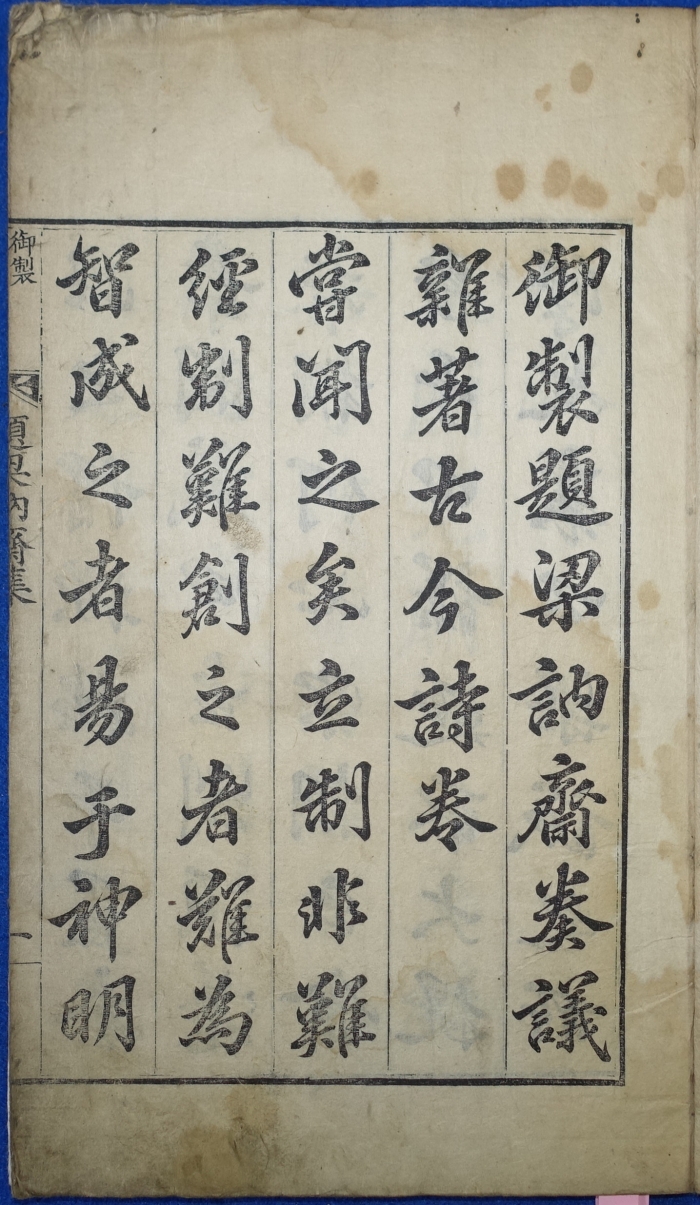 御製題梁訥齋奏議
雜著古今詩卷
嘗聞之矣立制非難
經制難創之者難為
智成之者易于神明
御製
訥齋集
一